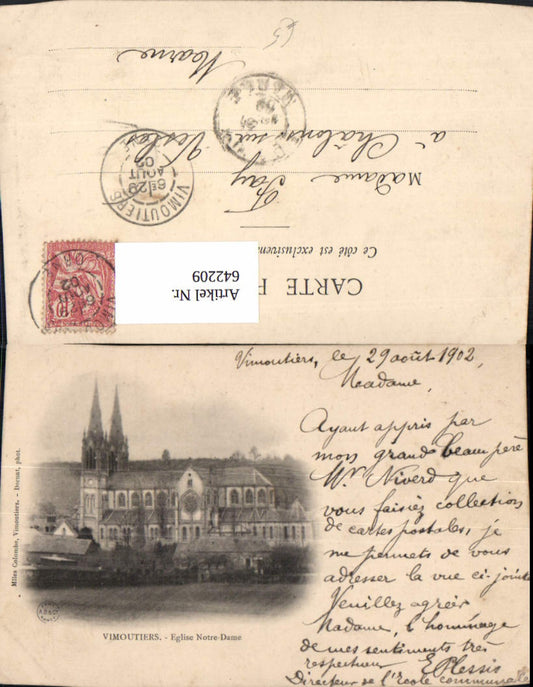 Marne
à Châlons sur Vesles
Madame Fay
VIMOUTIERS
6E 29
AOUT
02
Ce côté est exclusivem
CARTE P
10
Artikel Nr.
642209
Vimoutiers, le 29 août 1902,
Madame,
Ayant appris par
mon grand beau père
Mr Niverd que
vous faisiez collection
de cartes postales, je
me permets de vous
adresser la vue ci-jointe
Veuillez agréer
Madame, l'hommage
de mes sentiments très
respectueux
E. Plessis
Directeur de l'Ecole communale
Mlles Colombe, Vimoutiers. - Dornat, phot.
VIMOUTIERS. - Eglise Notre-Dame